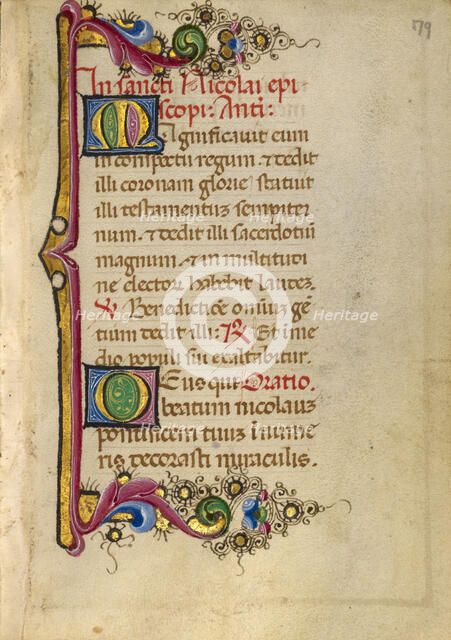 79
In sancti Nicolai epi
scopi: Anti:
Magnificavit eum
in conspectu regum. ⁊ dedit
illi coronam glorie. statuit
illi testamentuʒ sempiter
num. ⁊ dedit illi sacerdotiū
magnum. ⁊ in multitudi
ne electoꝝ habebit laudeʒ.
℣ Benedictiōe oniuʒ gē
tium dedit illi: ℟ Et ī me
dio populi sui exaltabitur.
Deus qui Oratio.
beatum nicolauʒ
pontificem tuuʒ īnume
ris decorasti miraculis.
Heritage Heritage
Images Images
Heritage Heritage Heritage
Images Images
Heritage Heritage
Images Images